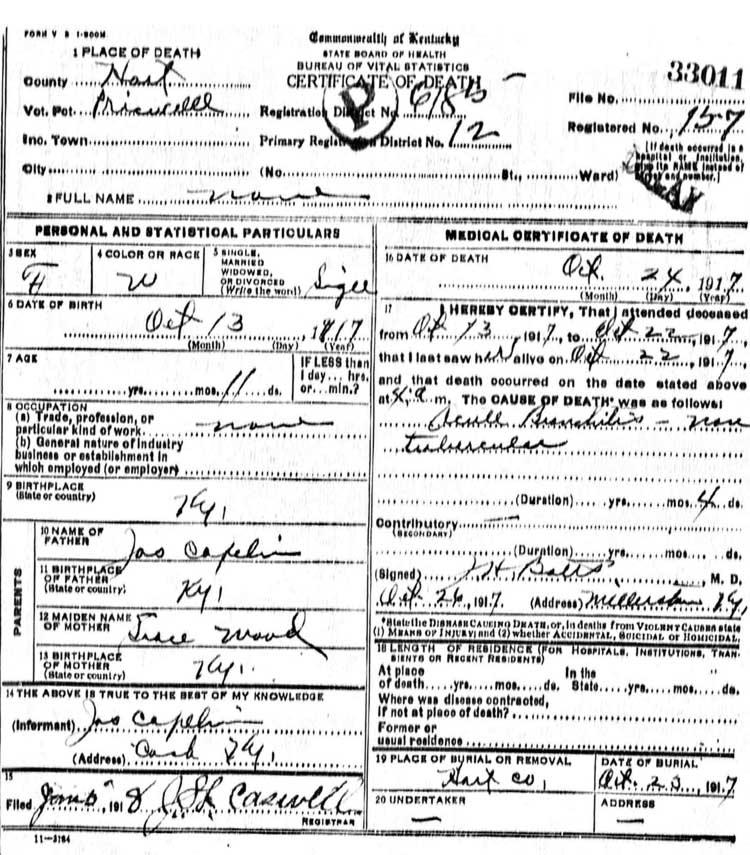 FORM V S 1-500M.
Commonwealth of Kentucky
STATE BOARD OF HEALTH
BUREAU OF VITAL STATISTICS
CERTIFICATE OF DEATH
33011
1 PLACE OF DEATH
County Hart
Vot. Pct.
Inc. Town
City
Registration District No. 618
Primary Registration District No. 12
File No.
Registered No. 157
(No. St., Ward)
[If death occurred in a hospital or institution, give its NAME instead of street and number.]
2 FULL NAME none
PERSONAL AND STATISTICAL PARTICULARS
3 SEX F
4 COLOR OR RACE W
5 SINGLE, MARRIED WIDOWED, OR DIVORCED (Write the word)
6 DATE OF BIRTH
Oct 13 1817
(Month) (Day) (Year)
7 AGE
yrs. mos. 11 ds.
IF LESS than 1 day... hrs. or... min.?
8 OCCUPATION
(a) Trade, profession, or particular kind of work none
(b) General nature of industry business or establishment in which employed (or employer)
9 BIRTHPLACE
(State or country) Ky,
PARENTS
10 NAME OF FATHER Jas
11 BIRTHPLACE OF FATHER (State or country) Ky,
12 MAIDEN NAME OF MOTHER Wood
13 BIRTHPLACE OF MOTHER (State or country) Ky.
14 THE ABOVE IS TRUE TO THE BEST OF MY KNOWLEDGE
(Informant) Jas
(Address) Ky,
15
Filed 1918 Caswell
REGISTRAR
11-3184
MEDICAL CERTIFICATE OF DEATH
16 DATE OF DEATH
Oct. 24, 1917
(Month) (Day) (Year)
17 I HEREBY CERTIFY, That I attended deceased
from Oct 13, 1917, to Oct 22, 1917,
that I last saw her alive on Oct 22, 1917,
and that death occurred on the date stated above
at 4 a m. The CAUSE OF DEATH* was as follows:
Bronchitis - none
tubercular
(Duration) yrs. mos. 4 ds.
Contributory
(SECONDARY)
(Duration) yrs. mos. ds.
(Signed) M. D.
Oct. 26, 1917. (Address) Millerstown Ky,
*State the DISEASE CAUSING DEATH, or, in deaths from VIOLENT CAUSES state
(1) MEANS OF INJURY; and (2) whether ACCIDENTAL, SUICIDAL or HOMICIDAL.
18 LENGTH OF RESIDENCE (FOR HOSPITALS, INSTITUTIONS, TRANSIENTS OR RECENT RESIDENTS)
At place of death yrs. mos. ds. In the State yrs. mos. ds.
Where was disease contracted, if not at place of death?
Former or usual residence
19 PLACE OF BURIAL OR REMOVAL
Hart Co,
DATE OF BURIAL
Oct. 25, 1917
20 UNDERTAKER
ADDRESS